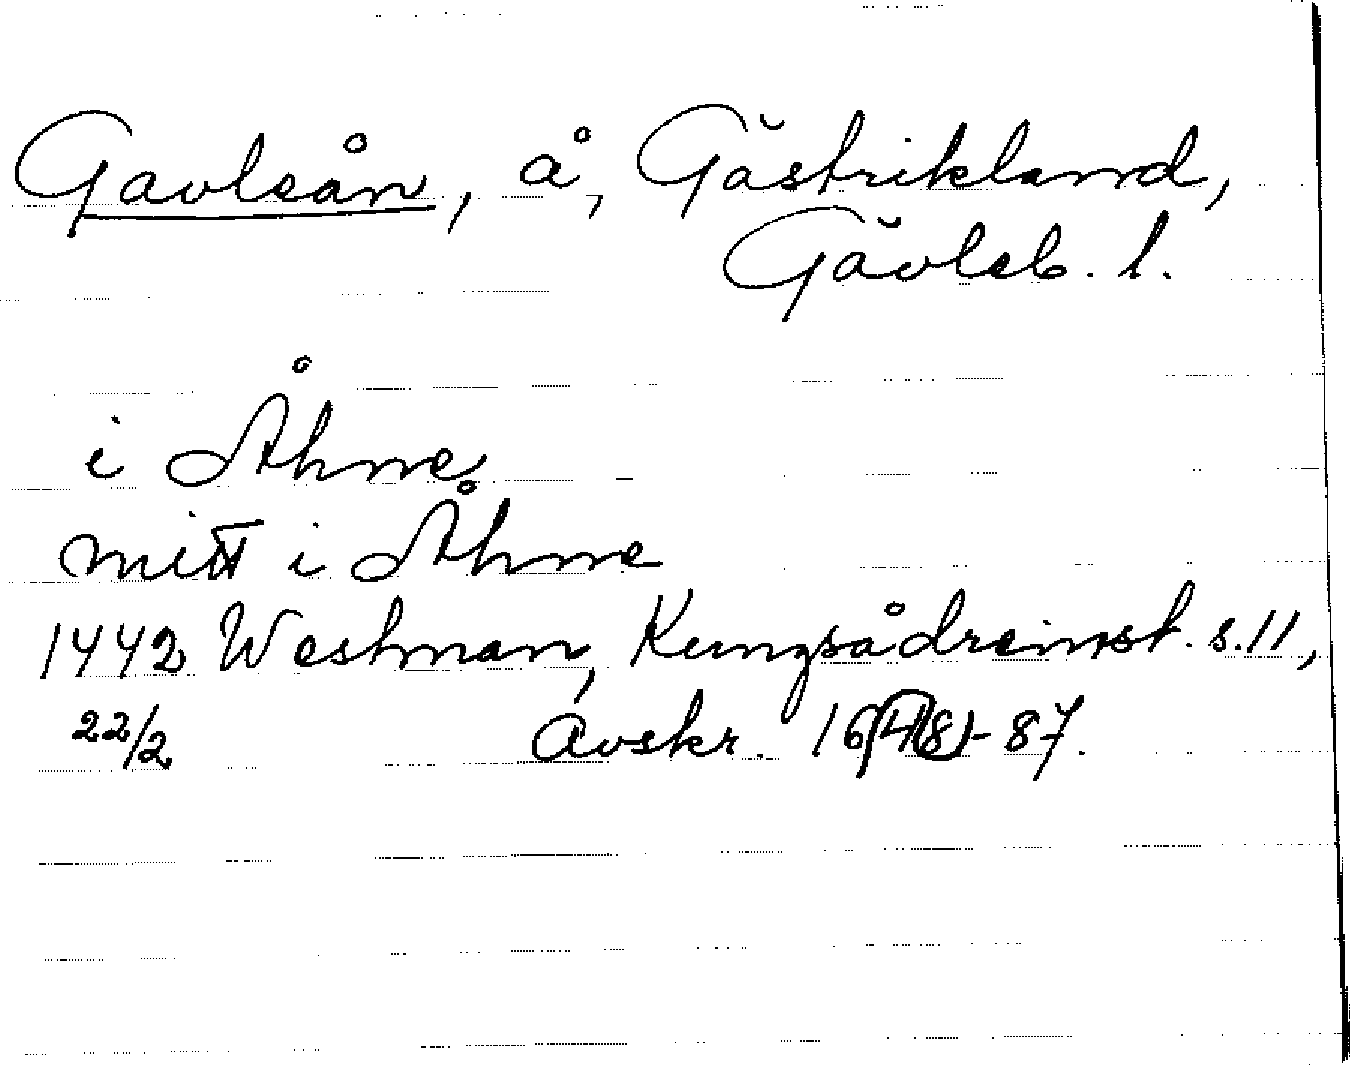 Gavleån, å, Gästrikland,
Gävleb. l.
i Åhne
mitt i Åhne
1442 Westman, Kungsådreinst. s. 11,
22/2 Avskr. 1648-87.